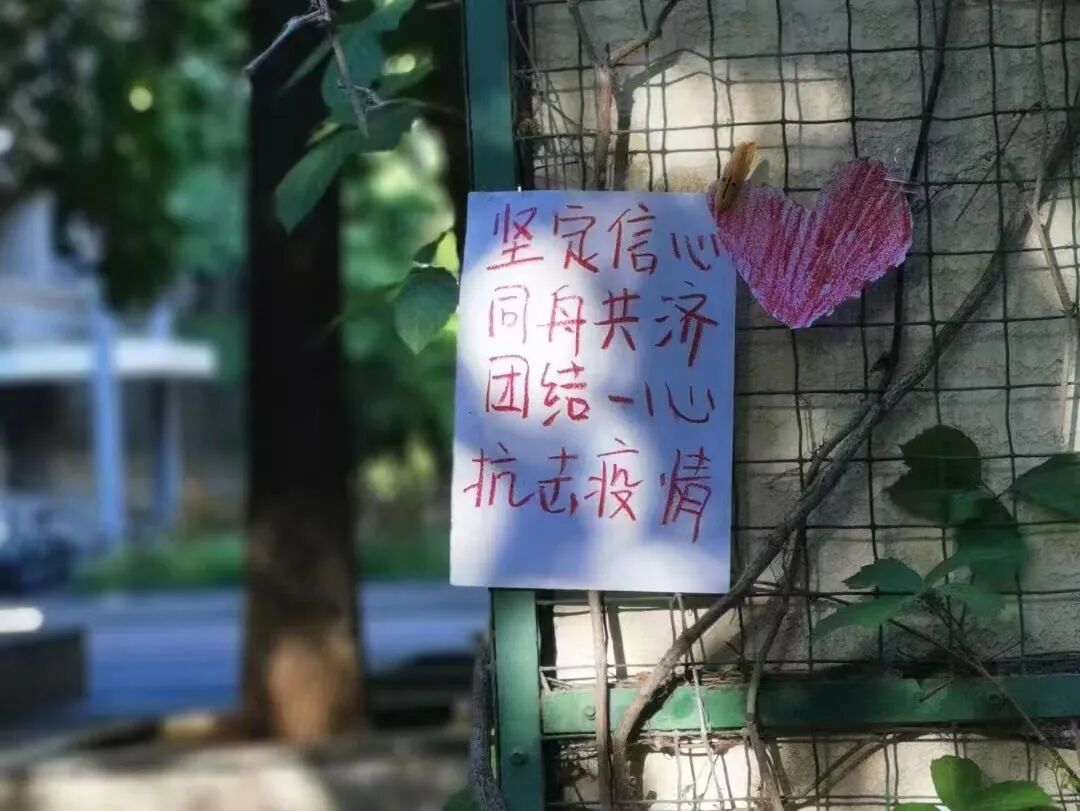 坚定信心
同舟共济
团结一心
抗击疫情